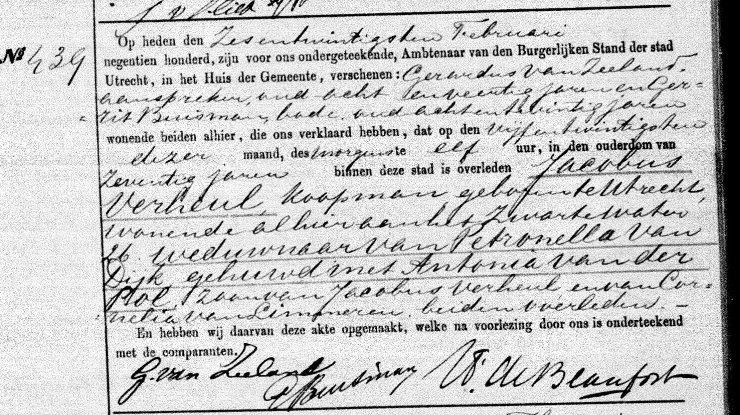 J v Vliet
No 439
Op heden den Zesentwintigsten Februari
negentien honderd, zijn voor ons ondergeteekende, Ambtenaar van den Burgerlijken Stand der stad
Utrecht, in het Huis der Gemeente, verschenen: Gerardus van Zeeland,
aanspreker, oud acht en veertig jaren en Ger-
rit Buisman, bode, oud achtentwintig jaren
wonende beiden alhier, die ons verklaard hebben, dat op den vijfentwintigsten
dezer maand, des morgens te elf uur, in den ouderdom van
zeventig jaren binnen deze stad is overleden Jacobus
Verheul, koopman geboren te Utrecht,
wonende alhier aan het Zwarte Water
26 weduwnaar van Petronella van
Dijk gehuwd met Antonia van der
Pol, zoon van Jacobus Verheul en van Cor-
nelia van Limmeren, beiden overleden. —
En hebben wij daarvan deze akte opgemaakt, welke na voorlezing door ons is onderteekend
met de comparanten.
G. van Zeeland G Buisman W. de Beaufort